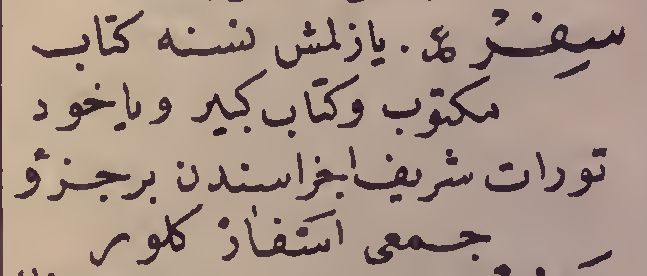 سِفِرْ ع. يازلمش نسنه كتاب
مكتوب وكتاب كبير وياخود
تورات شريف اجزاسندن برجزؤ
جمعى اَسْفَارْ كلور